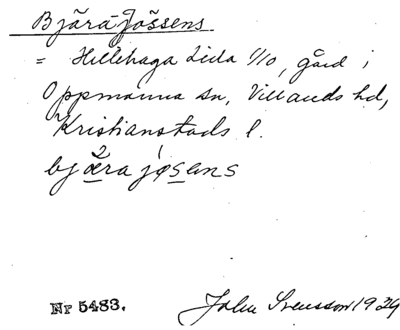 Bjärä-Jössens
= Hillehaga Lida 1/10, gård i
Oppmanna sn, Villands hd,
Kristianstads l.
bjæra jøsens
Nr 5483.
John Svensson 1929